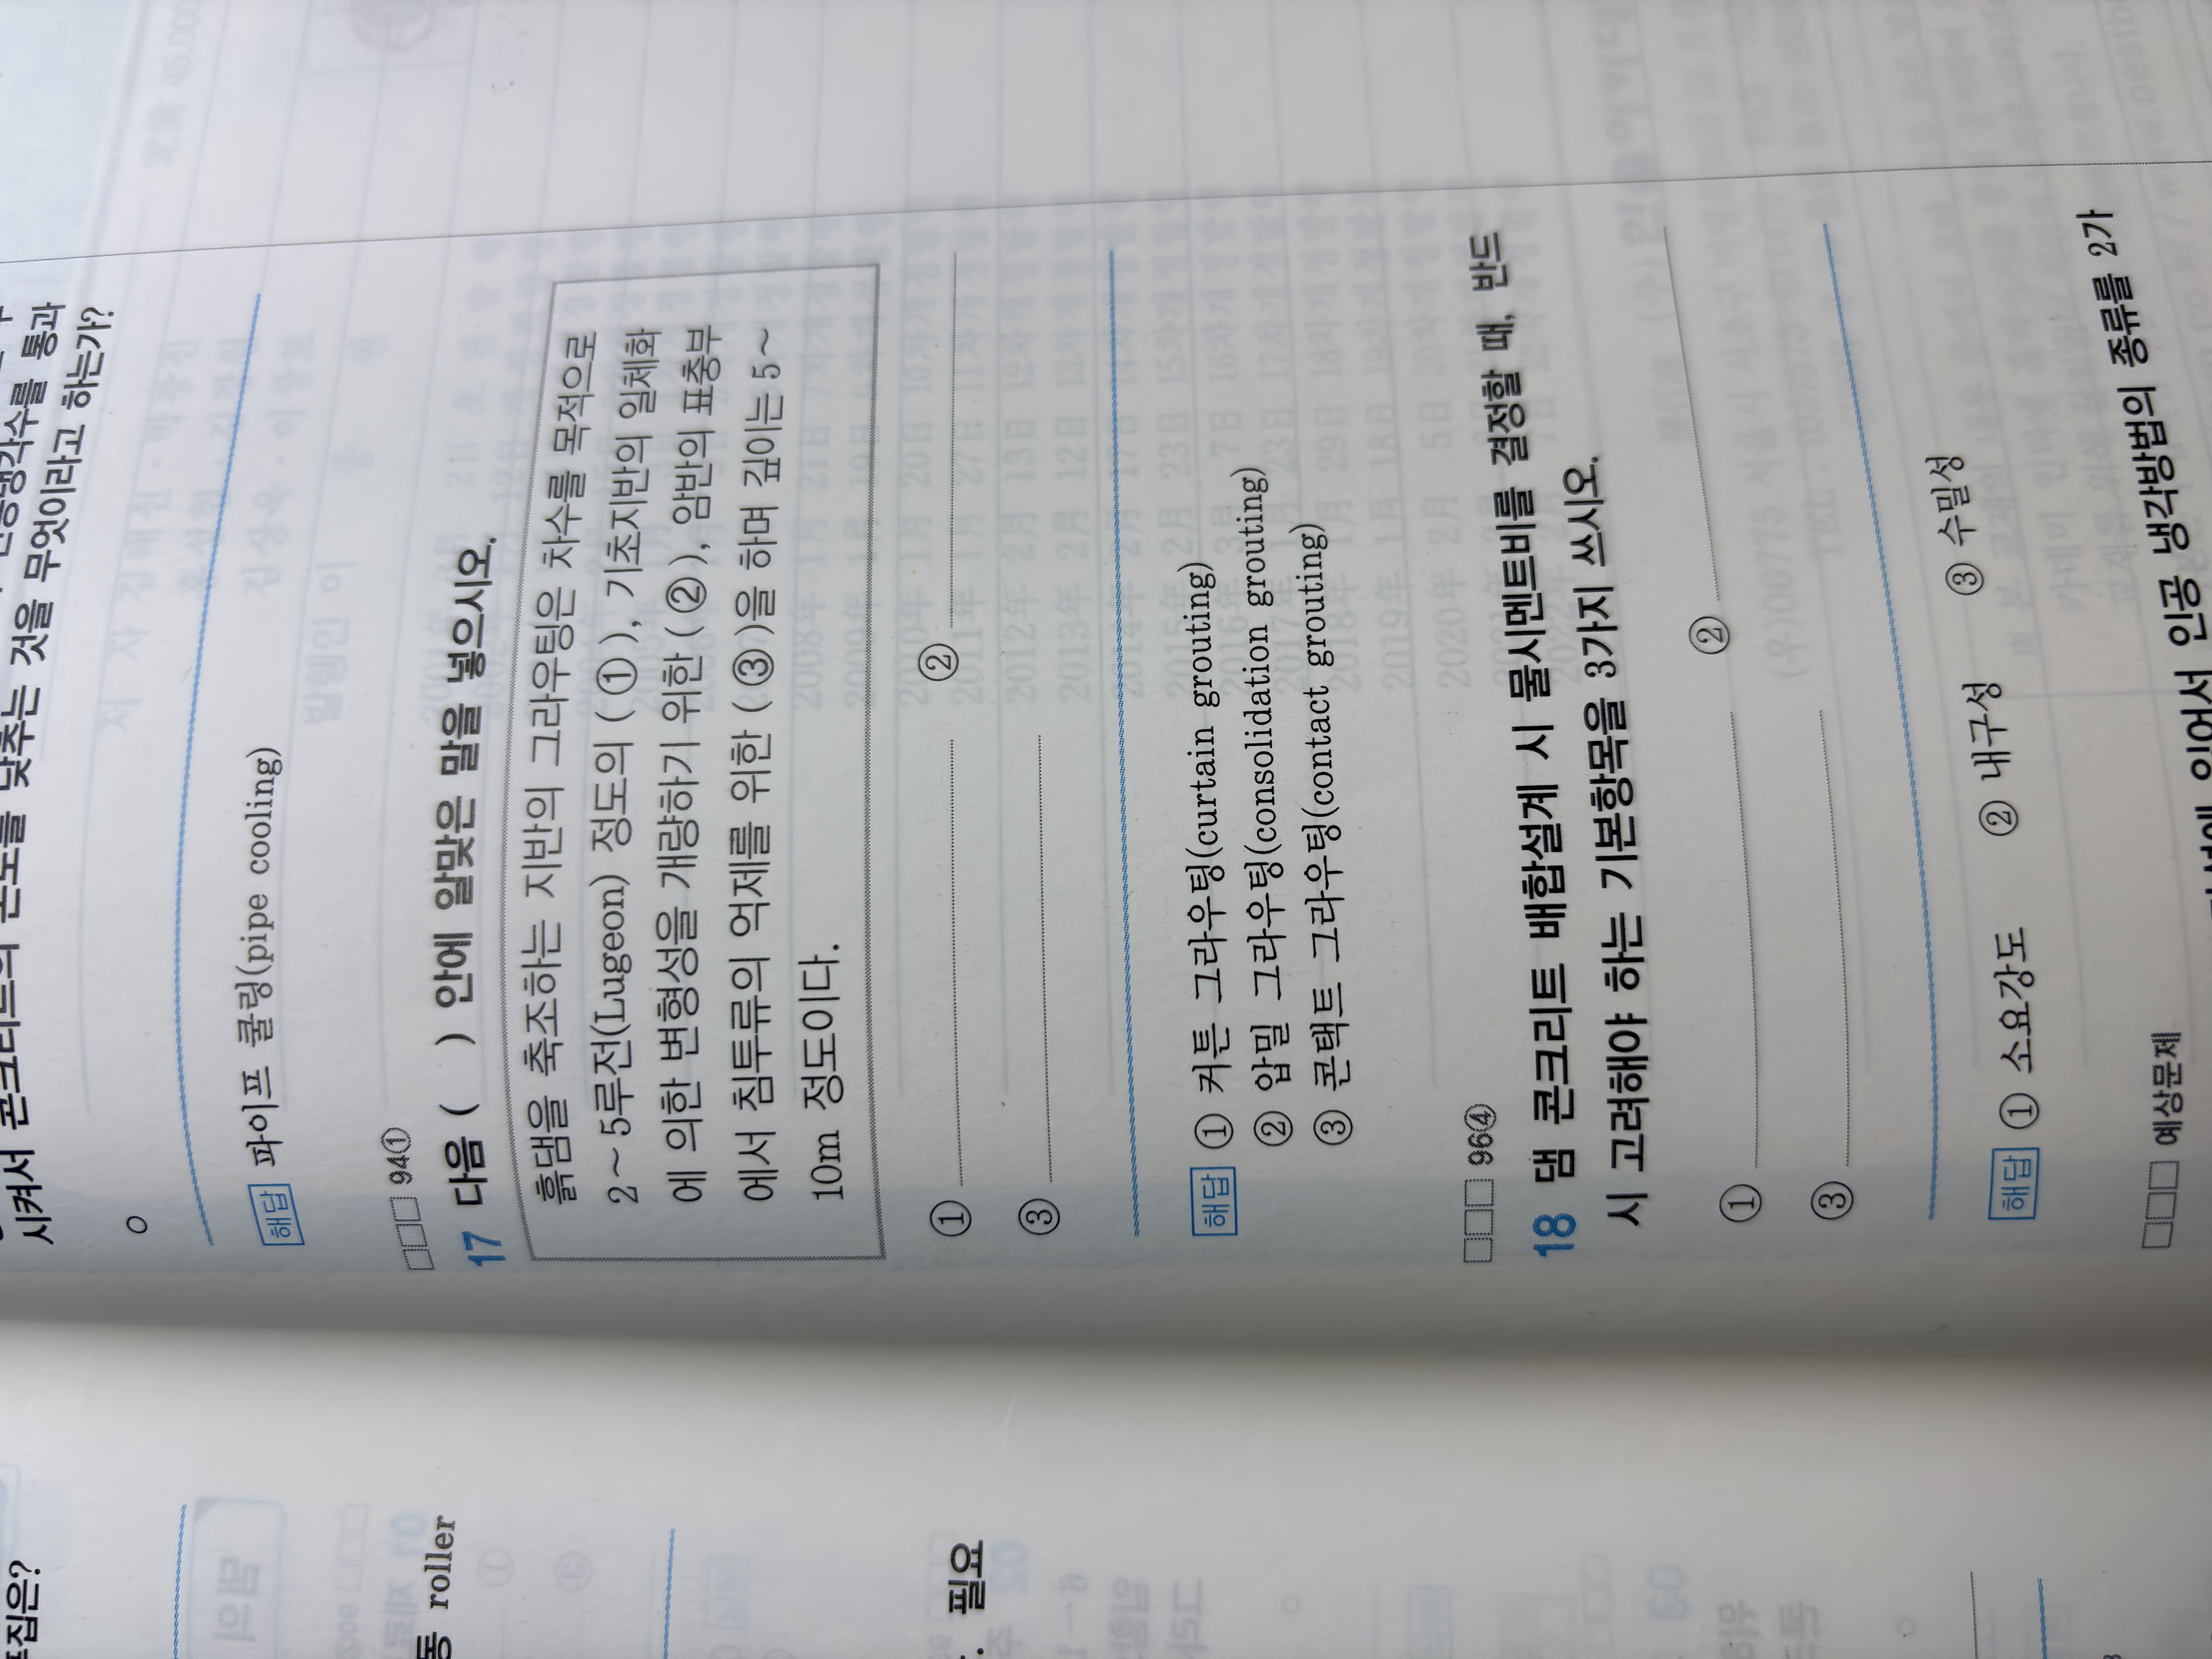 시켜서 콘크리트의 온도를 낮추는 것을 무엇이라고 하는가?
○
해답 파이프 쿨링(pipe cooling)
□□□ 94①
17 다음 ( ) 안에 알맞은 말을 넣으시오.
흙댐을 축조하는 지반의 그라우팅은 차수를 목적으로
2~5루전(Lugeon) 정도의 ( ① ), 기초지반의 일체화
에 의한 변형성을 개량하기 위한 ( ② ), 암반의 표층부
에서 침투류의 억제를 위한 ( ③ )을 하며 깊이는 5~
10m 정도이다.
① ②
③
해답 ① 커튼 그라우팅(curtain grouting)
② 압밀 그라우팅(consolidation grouting)
③ 콘택트 그라우팅(contact grouting)
□□□ 96④
18 댐 콘크리트 배합설계 시 물시멘트비를 결정할 때, 반드
시 고려해야 하는 기본항목을 3가지 쓰시오.
① ②
③
해답 ① 소요강도 ② 내구성 ③ 수밀성
□□□ 예상문제
있어서 인공 냉각방법의 종류를 2가
roller
필요